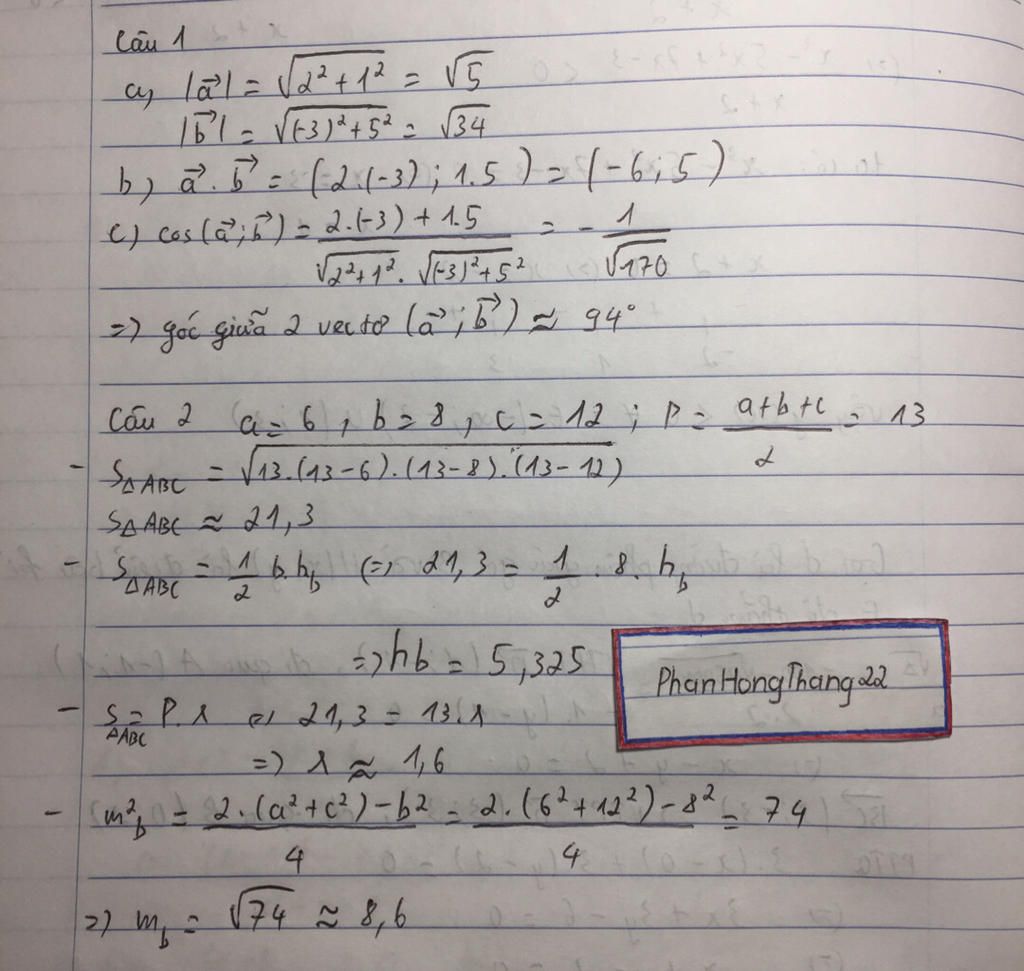 Câu 1
a) |a⃗| = √(2² + 1²) = √5
|b⃗| = √((-3)² + 5²) = √34
b) a⃗ . b⃗ = (2.(-3) ; 1.5) = (-6 ; 5)
c) cos(a⃗ ; b⃗) = (2.(-3) + 1.5) / (√(2² + 1²) . √((-3)² + 5²)) = - 1/√170
=) góc giữa 2 vectơ (a⃗ ; b⃗) ≈ 94°
Câu 2 a = 6 , b = 8 , c = 12 ; P = (a+b+c)/2 = 13
- S△ABC = √(13.(13-6).(13-8).(13-12))
S△ABC ≈ 21,3
- S△ABC = 1/2 b.h_b (=) 21,3 = 1/2 . 8 . h_b
=) hb = 5,325
PhanHongThang22
- S△ABC = P.r (=) 21,3 = 13.r
=) r ≈ 1,6
- m²_b = (2.(a² + c²) - b²)/4 = (2.(6² + 12²) - 8²)/4 = 74
=) m_b = √74 ≈ 8,6